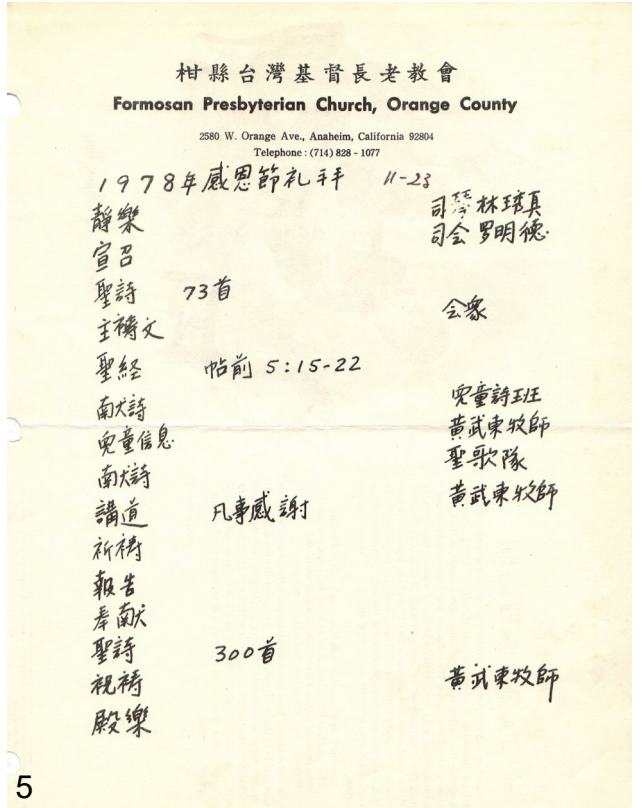 柑縣台灣基督長老教會
Formosan Presbyterian Church, Orange County
2580 W. Orange Ave., Anaheim, California 92804
Telephone: (714) 828-1077
1978年感恩節礼拜 11-23
靜樂 司琴 林琇真
宣召 司会 罗明德
聖詩 73首 会衆
主禱文
聖経 帖前 5:15-22
献詩 児童詩班
児童信息 黃武東牧師
献詩 聖歌隊
講道 凡事感謝 黃武東牧師
祈禱
報告
奉献
聖詩 300首
祝祷 黃武東牧師
殿樂
5